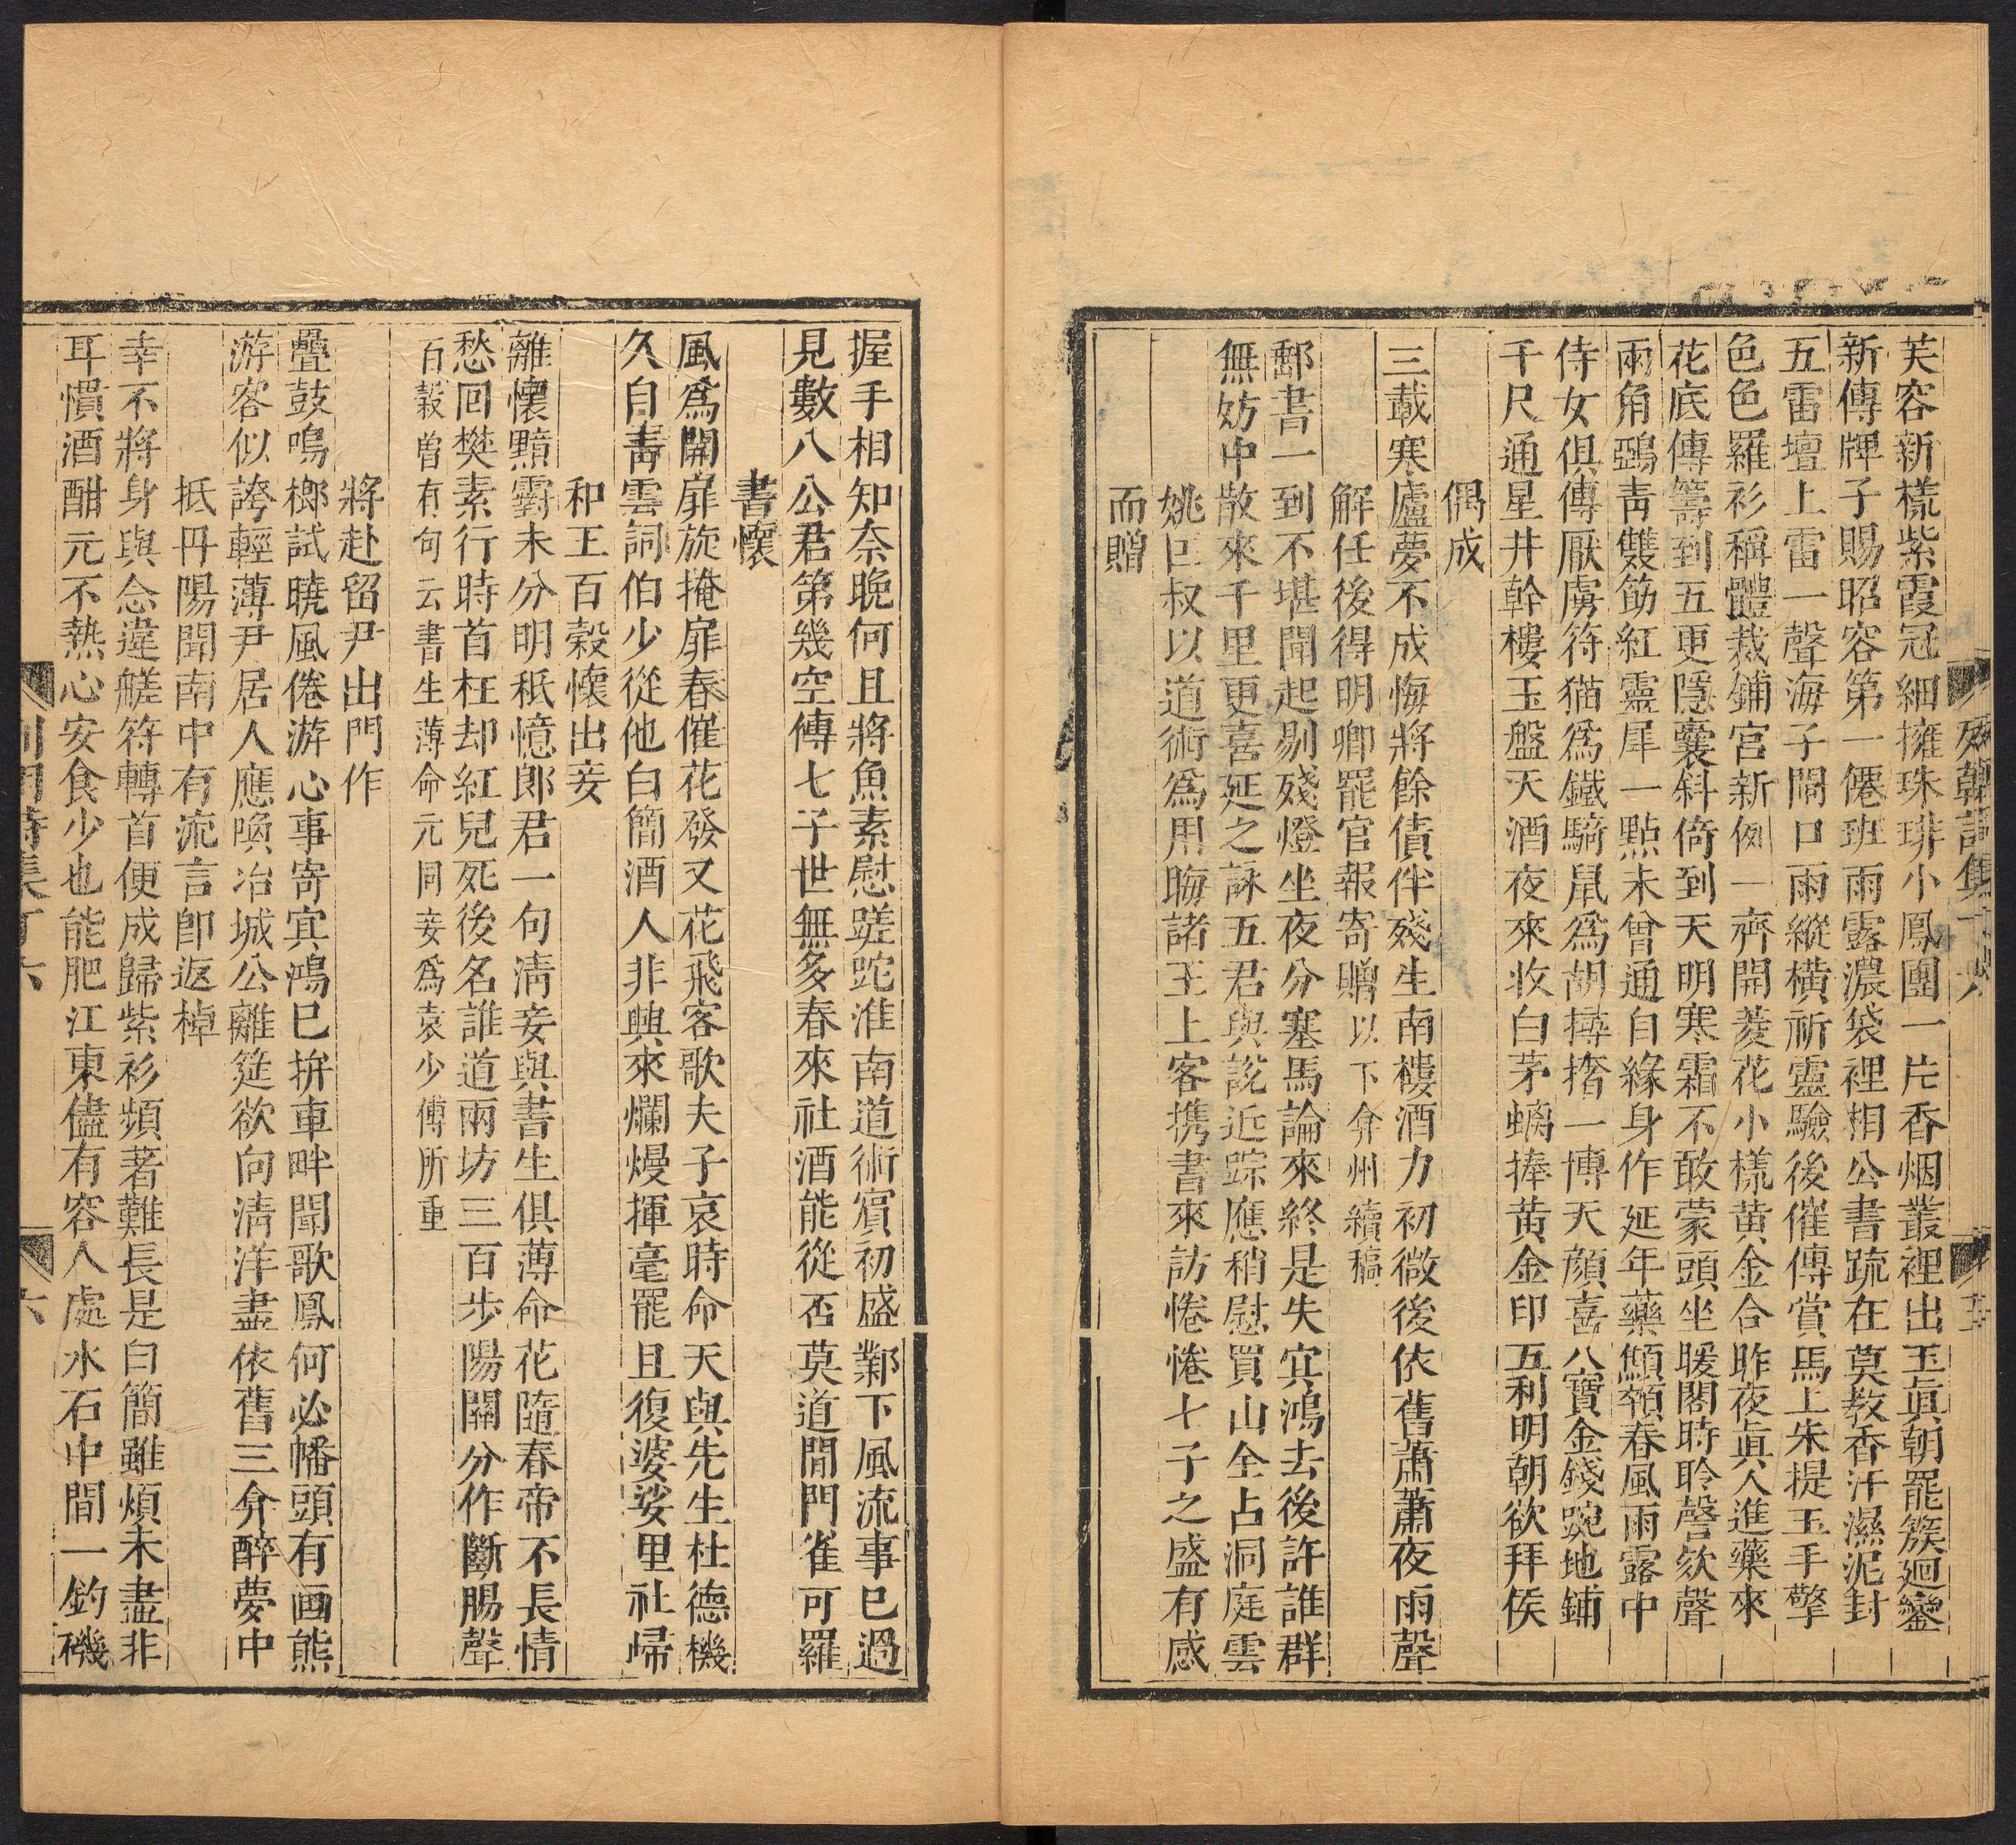 芙容新樣紫霞冠細擁珠琲小鳳團一片香烟叢裡出玉眞朝罷簇廻鑾
新傳牌子賜昭容第一僊班雨露濃袋裡相公書䟽在莫敎香汗濕泥封
五雷壇上雷一聲海子閘口雨縱橫祈靈驗後催傳賞馬上朱提玉手擎
色色羅衫稱體裁鋪宮新例一齊開菱花小樣黃金合昨夜眞人進藥來
花底傳籌到五更隱囊斜倚到天明寒霜不敢蒙頭坐暖閣時聆謦欬聲
兩角鵶靑雙筯紅靈犀一點未曾通自緣身作延年藥顦顇春風雨露中
侍女俱傳厭虜符猫爲鐵騎鼠爲胡摶撦一博天顏喜八寶金錢踠地鋪
千尺通星井幹樓玉盤天酒夜來收白茅螭捧黃金印五利明朝欲拜侯
偶成
三載寒廬夢不成悔將餘債伴殘生南樓酒力初微後依舊蕭蕭夜雨聲
解任後得明卿罷官報寄贈以下弇州續稿
郵書一到不堪聞起剔殘燈坐夜分塞馬論來終是失宾鴻去後許誰群
無妨中散來千里更喜延之詠五君與說近踪應稍慰買山全占洞庭雲
姚匡叔以道術爲用晦諸王上客携書來訪惓惓七子之盛有感
而贈
握手相知奈晚何且將魚素慰蹉跎淮南道術賓初盛鄴下風流事已過
見數八公君第幾空傳七子世無多春來社酒能從否莫道閒門雀可羅
書懷
風爲開扉旋掩扉春催花發又花飛客歌夫子哀時命天與先生杜德機
久自靑雲詞伯少從他白簡酒人非興來爛熳揮毫罷且復婆娑里社歸
和王百穀懷出妾
離懷黯霨未分明秖憶郎君一句淸妾與書生俱薄命花隨春帝不長情
愁回樊素行時首枉却紅兒死後名誰道兩坊三百步陽關分作斷腸聲
百穀曾有句云書生薄命元同妾爲袁少傅所重
將赴留尹出門作
疊鼓鳴榔試曉風倦游心事寄宾鴻已拚車畔聞歌鳳何必幡頭有画熊
游客似誇輕薄尹居人應喚冶城公離筵欲向淸洋盡依舊三弇醉夢中
抵丹陽聞南中有流言卽返棹
幸不將身與念違艖符轉首便成歸紫衫頻著難長是白簡雖煩未盡非
耳慣酒酣元不熱心安食少也能肥江東儘有容人處水石中間一釣磯